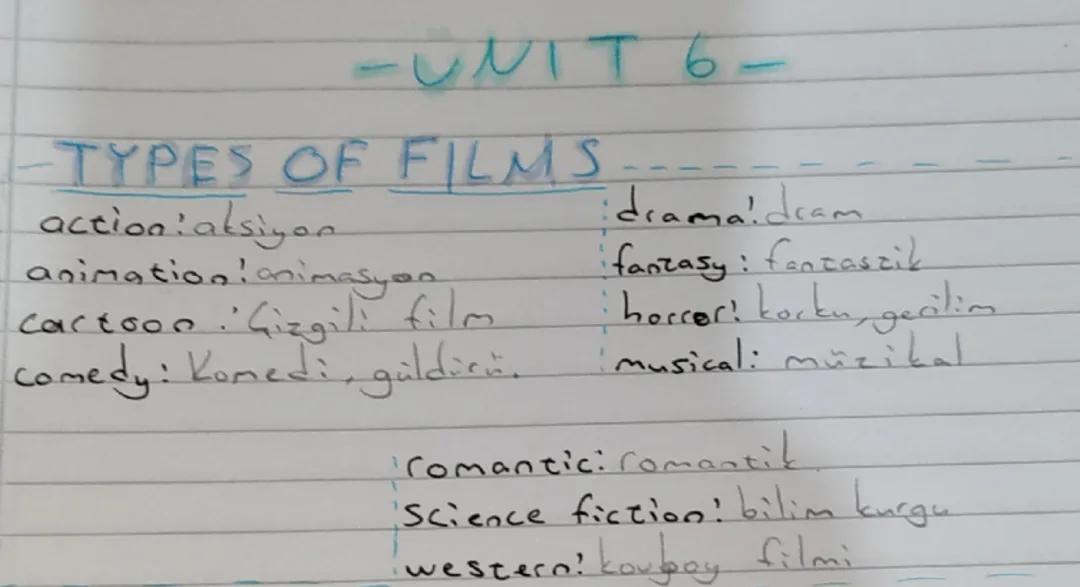 -UNIT 6-
-TYPES OF FILMS
action: aksiyon
animation: animasyon
cartoon: Çizgili film
comedy: Komedi, güldürü.
drama: dram
fantasy: fantastik
horror: korku, gerilim
musical: müzikal
romantic: romantik
science fiction: bilim kurgu
western: kovboy filmi